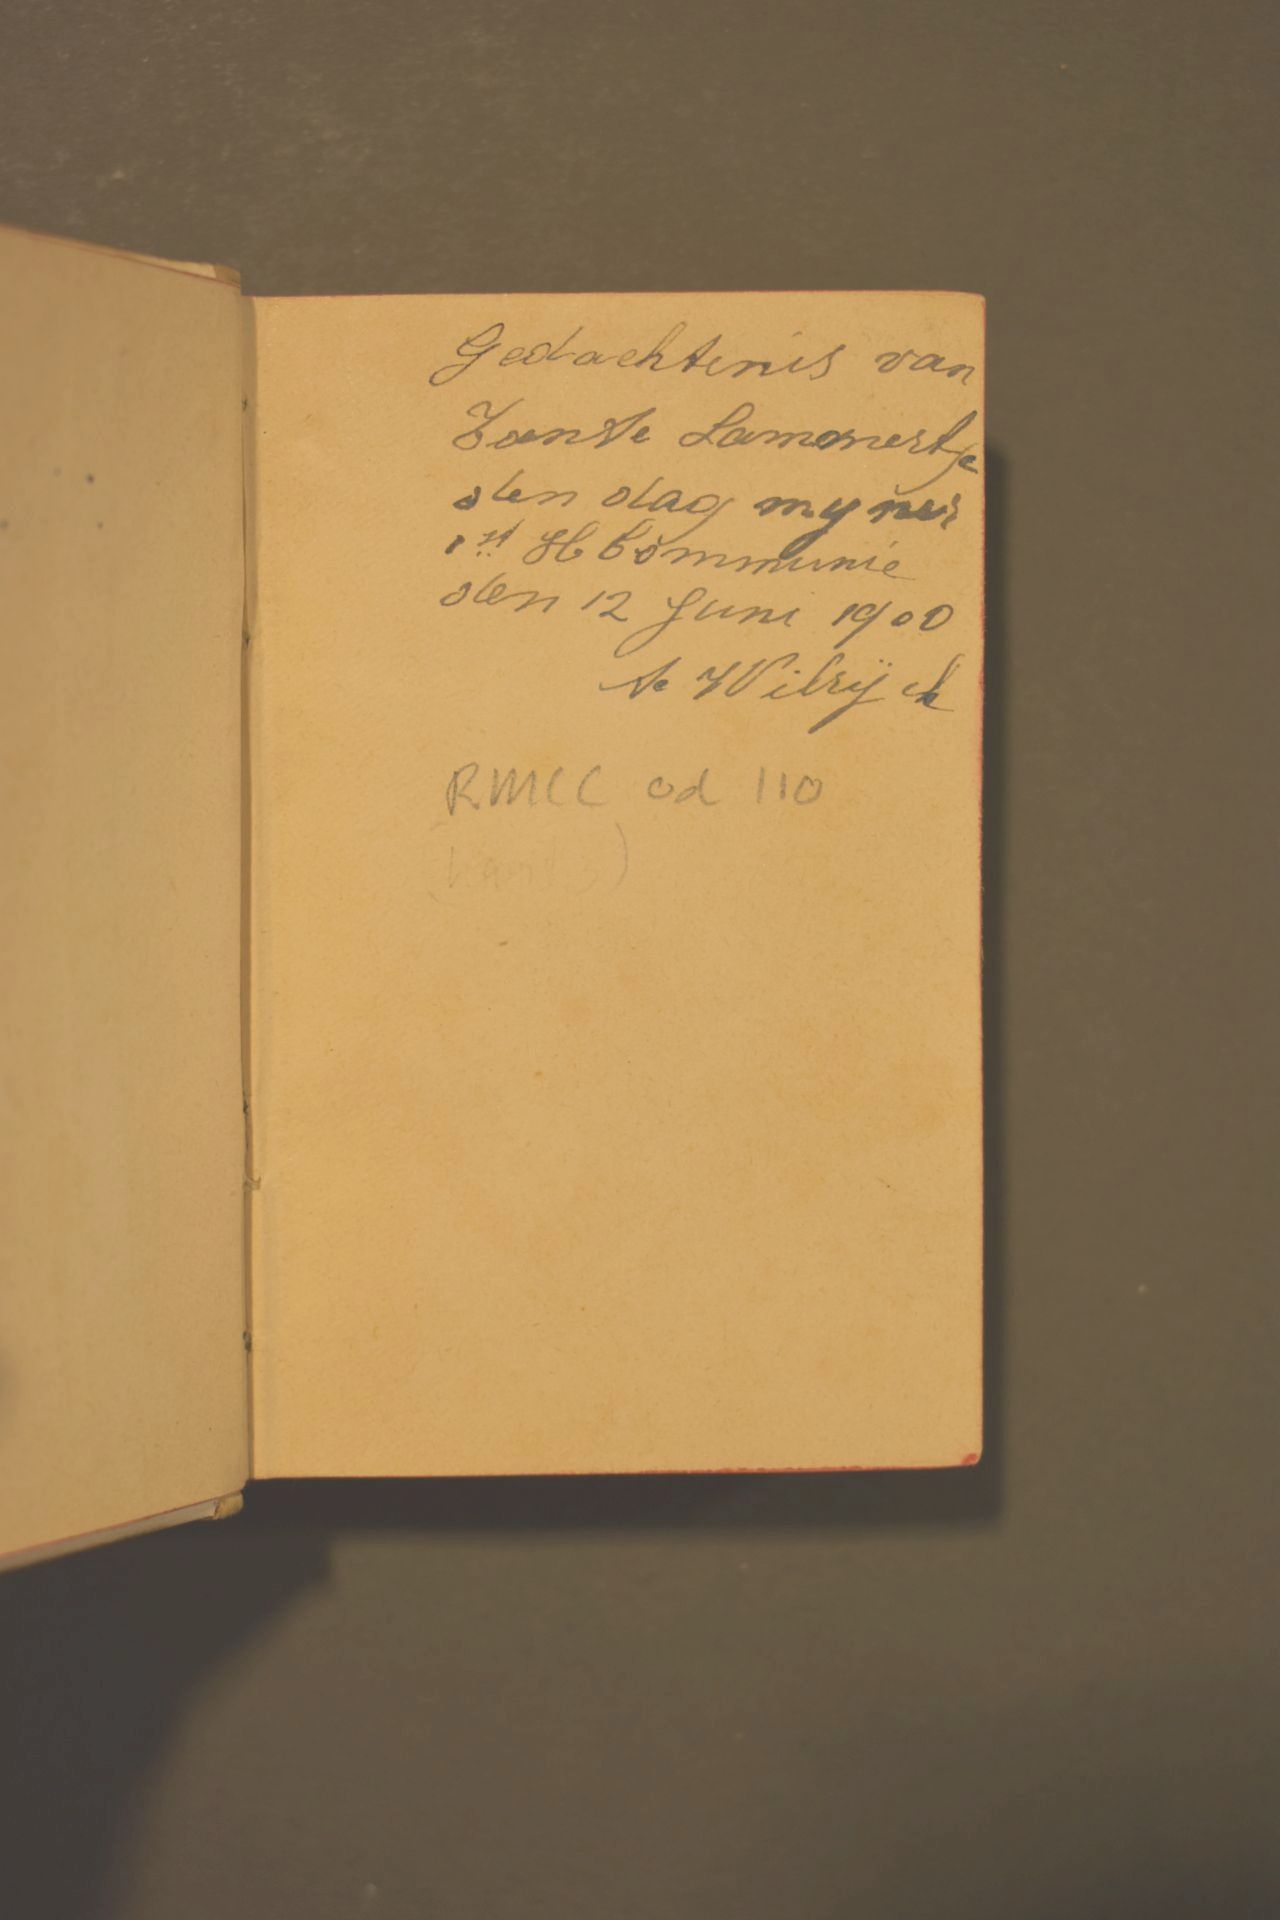 Gedachtenis van
Tante Lammertje
den dag myner
1st H Communie
den 12 Juni 1900
te Wilrÿck
RMCC od 110